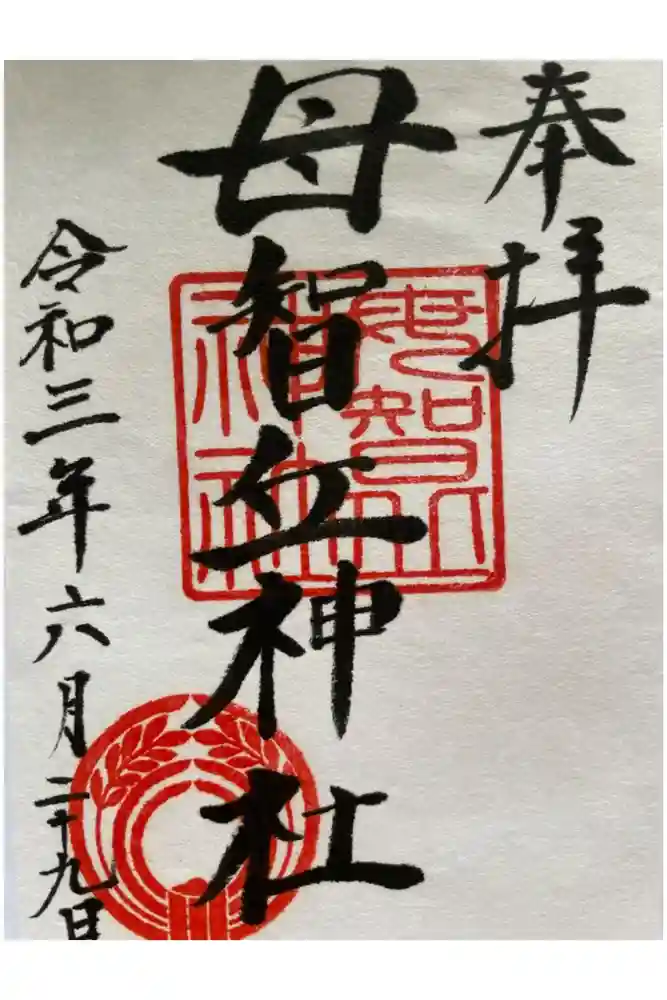 奉拝
母智丘神社
母智丘
神社
令和三年六月二十九日